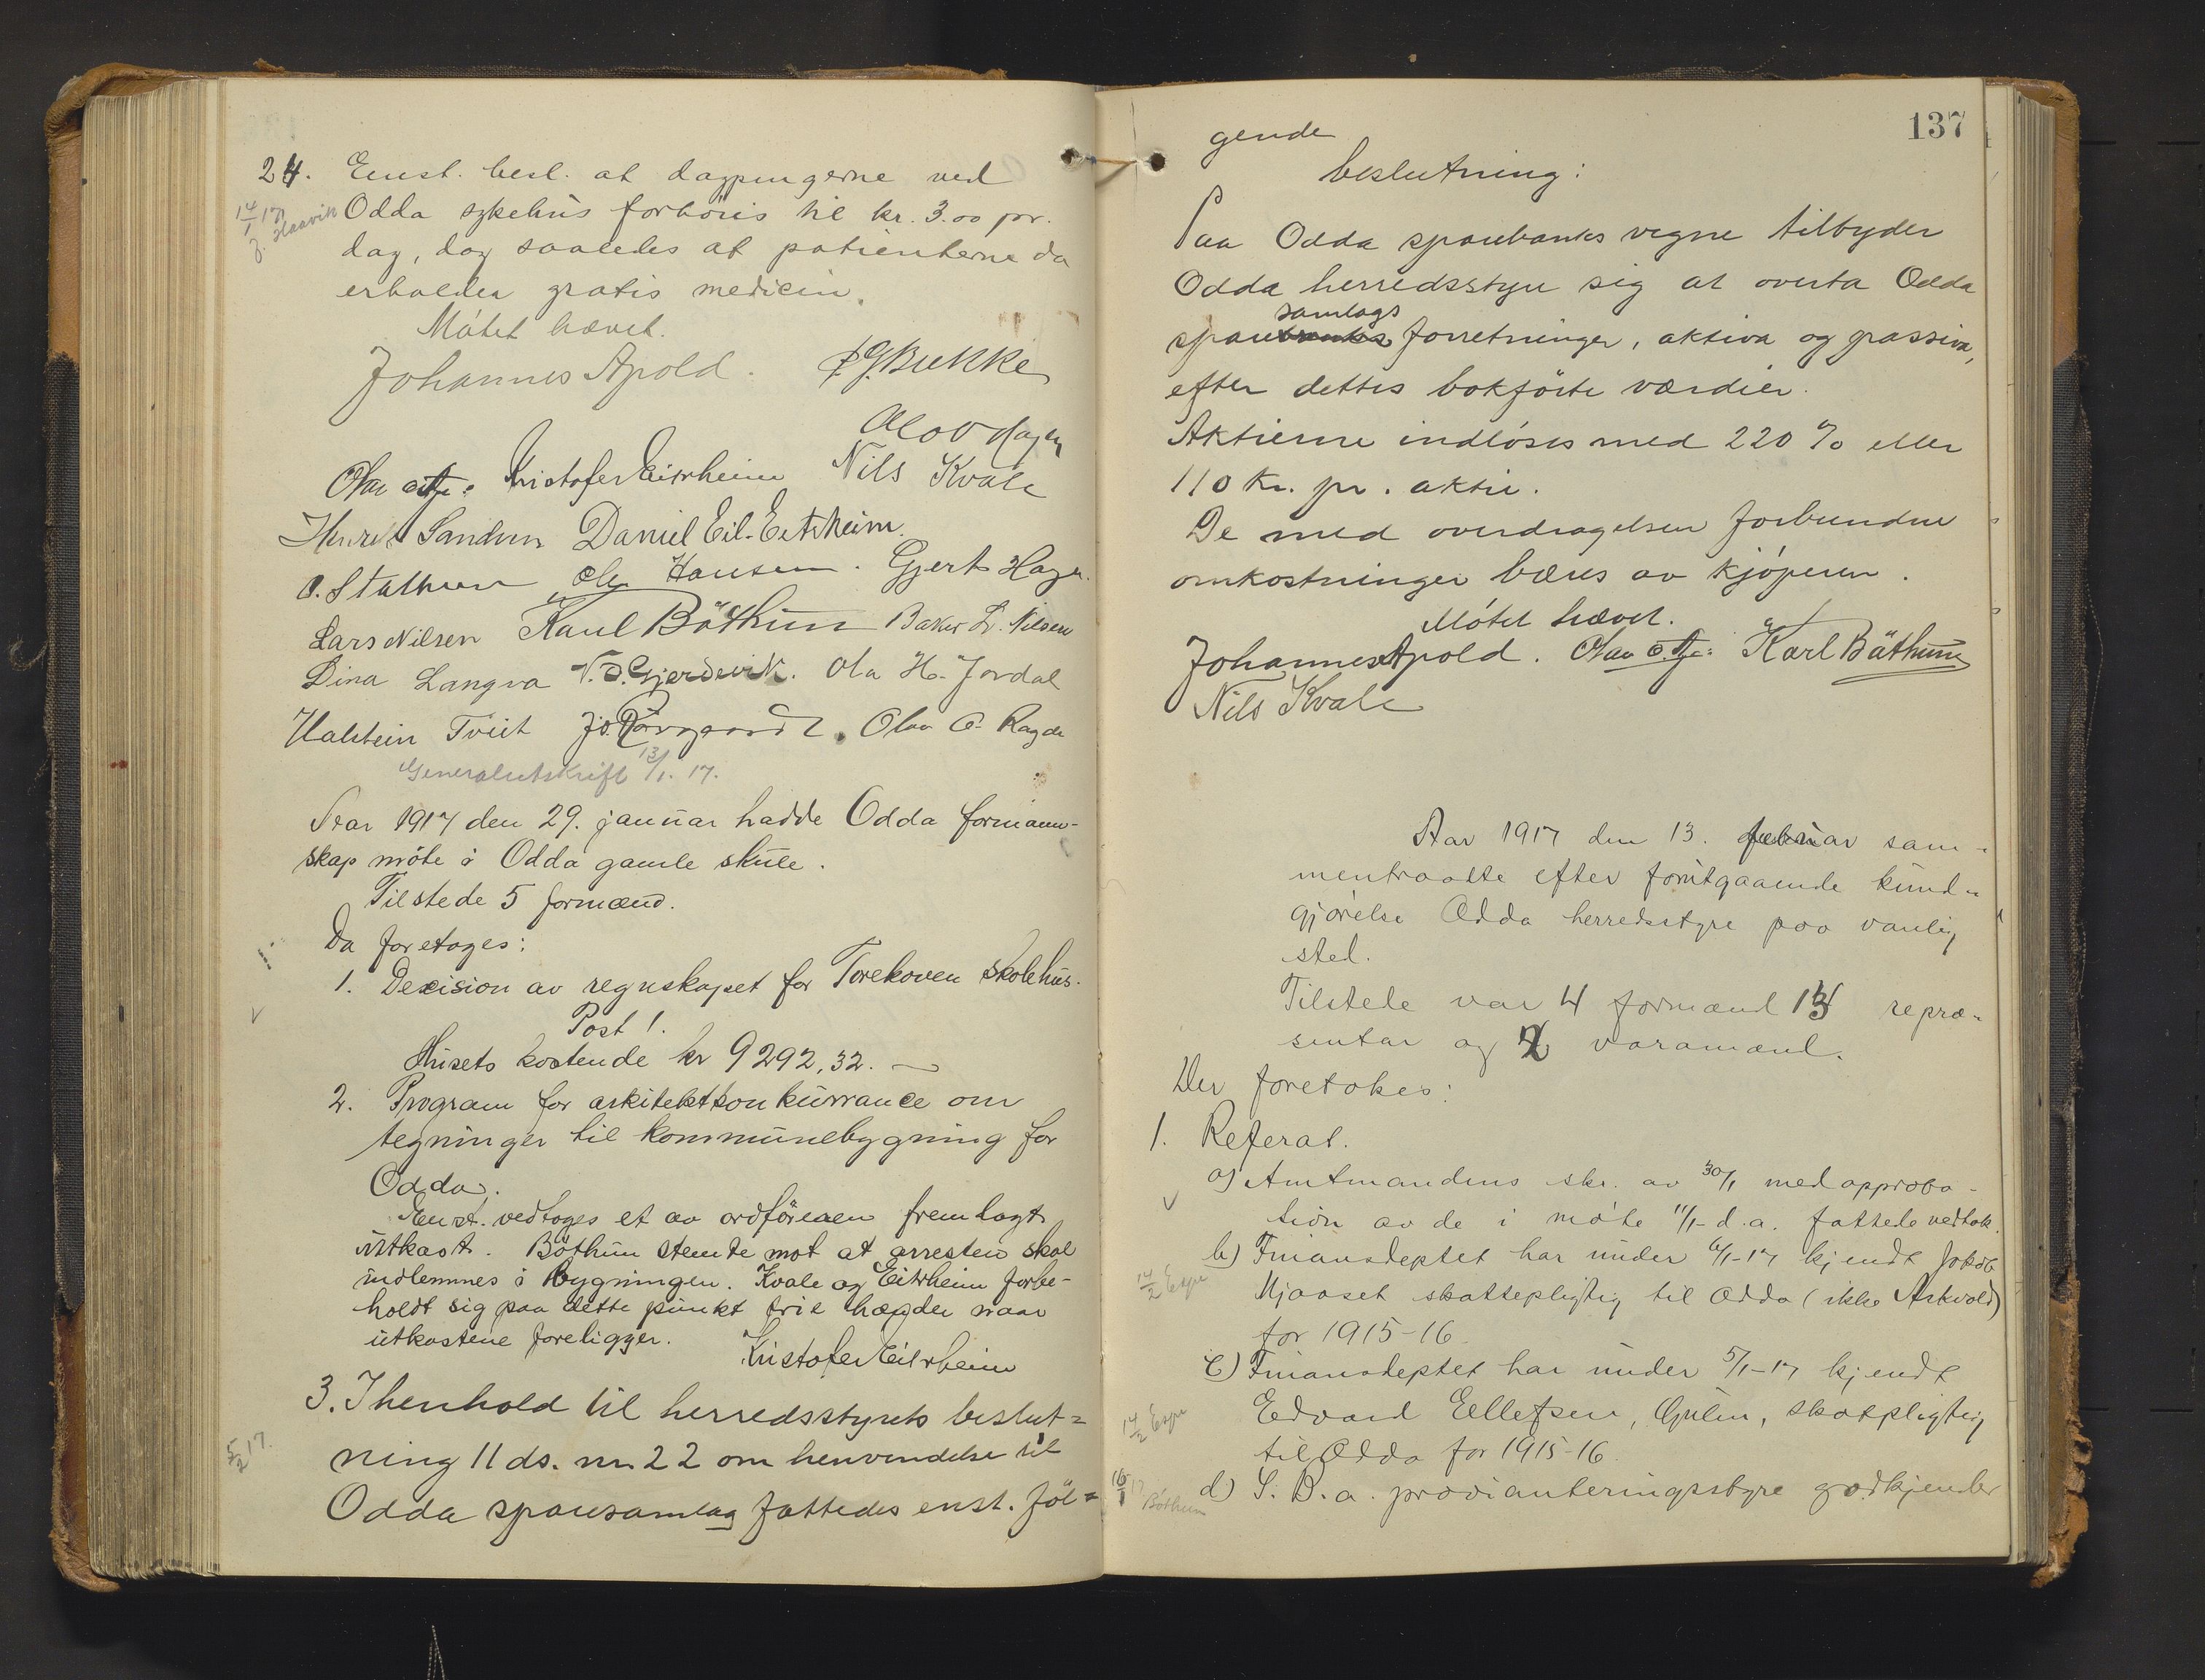 24. Enst. besl. at dagpengerne ved
14/1 17 J. Haavik
Odda sykehus forhöies til kr. 3.00 pr.
dag, dog saaledes at patienterne da
erholder gratis medicin.
Mötet hævet.
Johannes Apold. P G. Bukke
Olav Hagen
Kristofer Eitrheim Nils Kvale
Daniel Eil. Eitrheim.
Hansen. Gjert Hagen.
Lars Nilsen Karl Böthun Baker L. Nilsen
Dina Langva N. S. Gjerdevik. Ola H. Jordal
Halstein Tveit Olav O. Ragde
Generalutskrift 13/1. 17.
Aar 1917 den 29. januar hadde Odda formann-
skap möte i Odda gamle skule.
Tilstede 5 formænd.
Da foretoges:
1. Decision av regnskapet for Torekoven skolehus.
Post 1.
Husets kostende kr 9292,32. —
2. Program for arkitektkonkurrance om
tegninger til kommunebygning for
Odda.
Enst. vedtoges et av ordföreren fremlagt
utkast. Böthun stemte mot at arresten skal
indlemmes i bygningen. Kvale og Eitrheim forbe-
holdt sig paa dette punkt frie hænder naar
utkastene foreligger. Kristofer Eitrheim
3. I henhold til herredsstyrets beslut=
ning 11 ds. nr. 22 om henvendelse til
5/2 17.
Odda sparesamlag fattedes enst. föl=
137
gende
beslutning:
Paa Odda sparebanks vegne tilbyder
Odda herredsstyre sig at overta Odda
samlags
sparebanks forretninger, aktiva og passiva,
efter dettes bokförte værdier.
Aktierne indlöses med 220 % eller
110 kr. pr. aktie.
De med overdragelsen forbundne
omkostninger bæres av kjöperen.
Mötet hævet.
Johannes Apold. Karl Böthun
Nils Kvale
Aar 1917 den 13. februar sam-
mentraatte efter forutgaaende kund-
gjörelse Odda herredsstyre paa vanlig
sted.
Tilstede var 4 formænd 13 repræ-
sentar og 2 varamænd.
Der foretokes:
1. Referat.
a) Amtmandens skr. av 30/1 med approba-
tion av de i möte 11/1 d.a. fattede vedtak.
b) Finansdeptet har under 6/1-17 kjendt Jakob
14/2 Espe
Mjaaset skattepligtig til Odda (ikke Askvold)
for 1915-16.
c) Finansdeptet har under 5/1-17 kjendt
14/2 Espe
Edvard Ellefsen, Gulen, skatpligtig
til Odda for 1915-16.
d) S. B. a. provianteringsstyre godkjender
Böthun